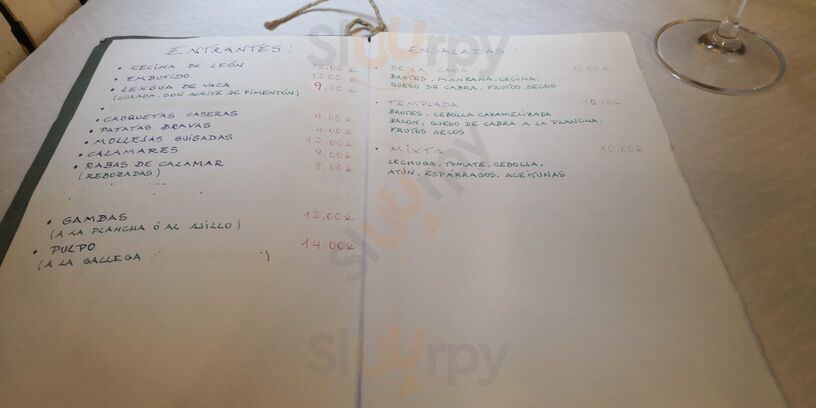 ENTRANTES:
• CECINA DE LEÓN 12.00 €
• EMBUTIDO 12.00 €
• LENGUA DE VACA 9,00 €
(CURADA, CON ACEITE DE PIMENTÓN)
• CROQUETAS CASERAS 9.00 €
• PATATAS BRAVAS 4.00 €
• MOLLEJAS GUISADAS 12.00 €
• CALAMARES 9.00 €
• RABAS DE CALAMAR 8.00 €
(REBOZADAS)
• GAMBAS 12.00 €
(A LA PLANCHA Ó AL AJILLO)
• PULPO 14.00 €
(A LA GALLEGA )
ENSALADAS:
• DE LA CASA 10.00 €
BROTES, MANZANA, CECINA,
QUESO DE CABRA, FRUTOS SECOS
• TEMPLADA 10.00 €
BROTES, CEBOLLA CARAMELIZADA
BACON, QUESO DE CABRA A LA PLANCHA,
FRUTOS SECOS
• MIXTA 10.00 €
LECHUGA, TOMATE, CEBOLLA,
ATÚN, ESPÁRRAGOS, ACEITUNAS
sluurpy
sluurpy
sluurpy